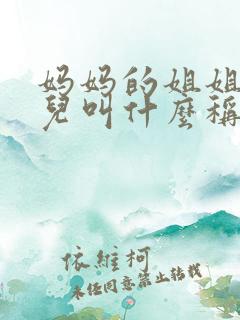 妈妈的姐姐
兒叫什麽稱
依維柯
未经同意禁止转载